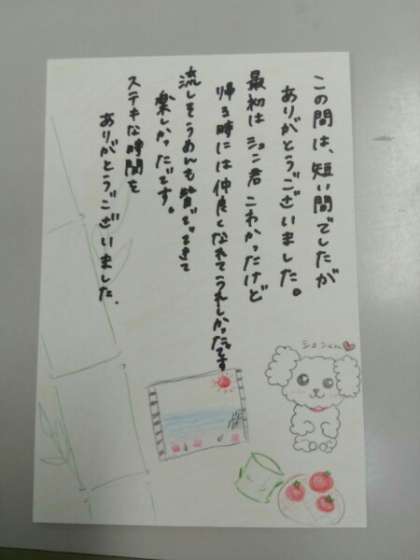 この間は、短い間でしたが
ありがとうございました。
最初はシュン君こわかったけど
帰る時には仲良くなれてうれしかったです
流しそうめんも皆でできて
楽しかったです。
ステキな時間を
ありがとうございました。
シュンくん